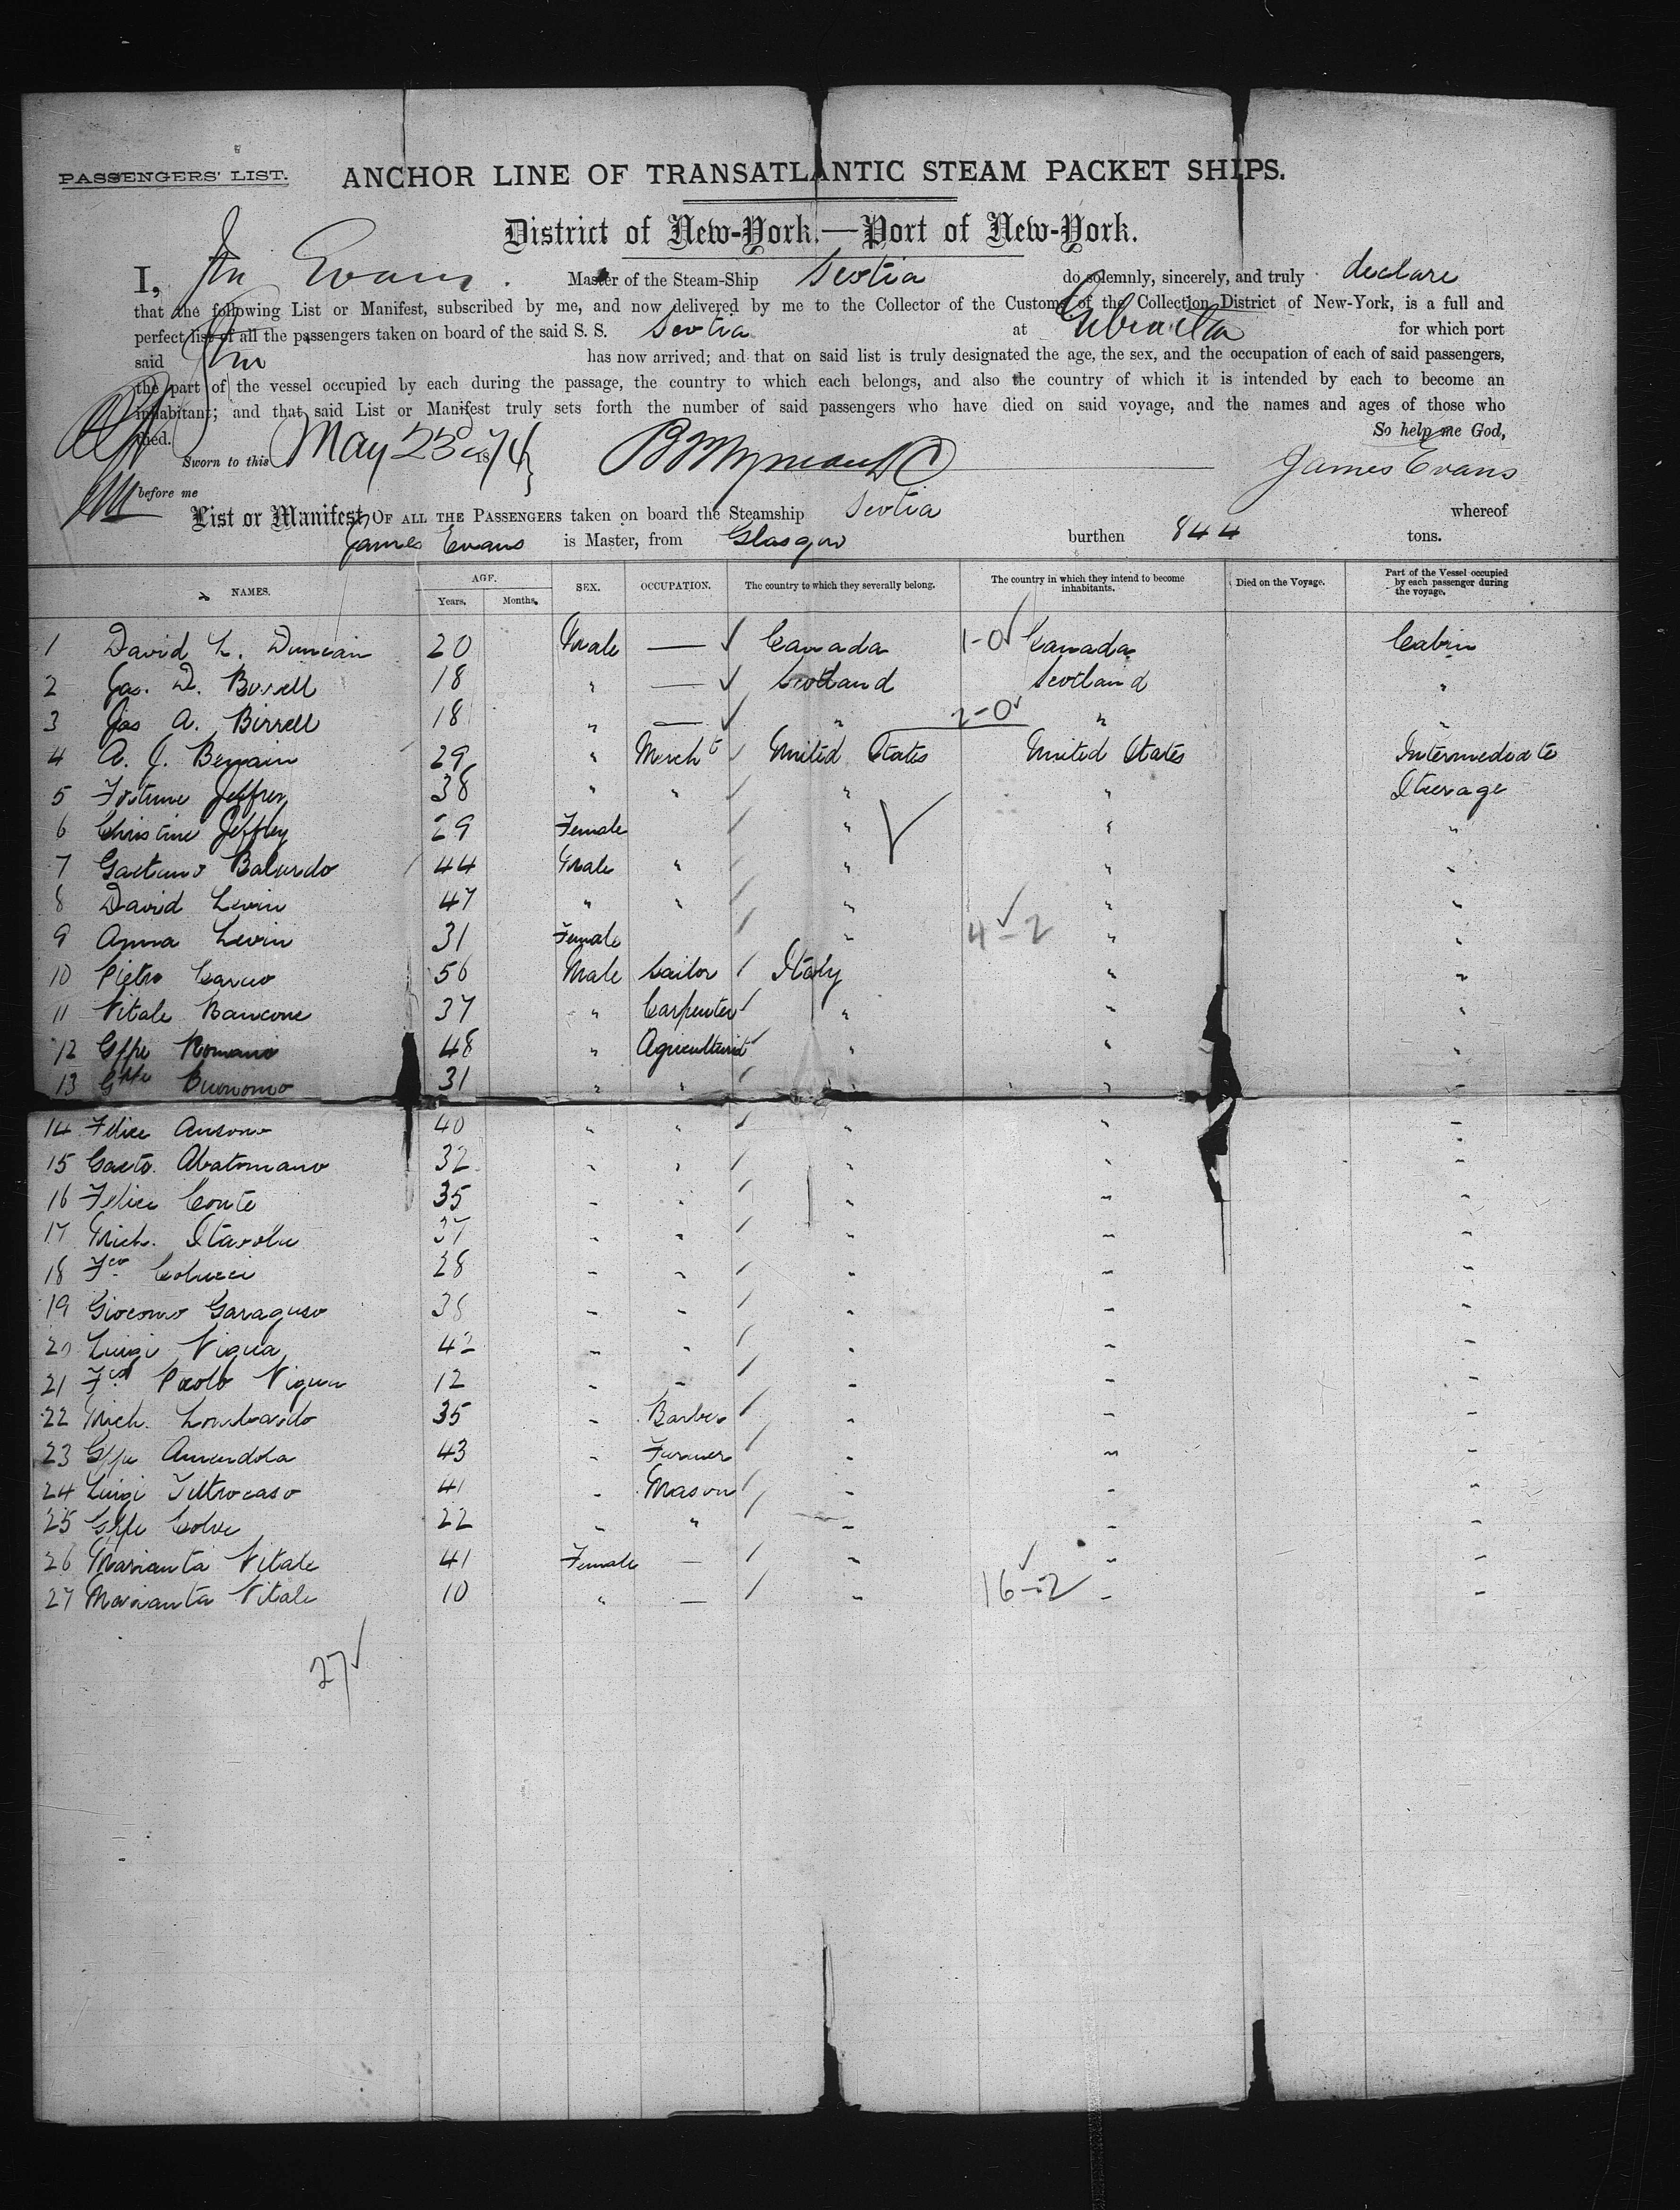 PASSENGERS' LIST.
ANCHOR LINE OF TRANSATLANTIC STEAM PACKET SHIPS.
District of New-York.—Port of New-York.
I, Jas Evans. Master of the Steam-Ship Scotia do solemnly, sincerely, and truly declare
that the following List or Manifest, subscribed by me, and now delivered by me to the Collector of the Customs of the Collection District of New-York, is a full and
perfect list of all the passengers taken on board of the said S. S. Scotia at Gibraltar for which port
said has now arrived; and that on said list is truly designated the age, the sex, and the occupation of each of said passengers,
the part of the vessel occupied by each during the passage, the country to which each belongs, and also the country of which it is intended by each to become an
inhabitant; and that said List or Manifest truly sets forth the number of said passengers who have died on said voyage, and the names and ages of those who
died. So help me God,
Sworn to this May 23d 1874 James Evans
before me
List or Manifest, OF ALL THE PASSENGERS taken on board the Steamship Scotia whereof
James Evans is Master, from Glasgow burthen 844 tons.
NAMES. AGE. Years. Months. SEX. OCCUPATION. The country to which they severally belong. The country in which they intend to become inhabitants. Died on the Voyage. Part of the Vessel occupied by each passenger during the voyage.
1 David L. Duncan 20 Male — Canada 1-0 Canada Cabin
2 Jas. D. Birrell 18 " — Scotland Scotland "
3 Jas A. Birrell 18 " — " 2-0 " "
4 A. J. 29 " Mercht United States United States Intermediate
5 Fortune Jeffrey 38 " " " " Steerage
6 Christine Jeffrey 29 Female " " "
7 Gaetano Balurdo 44 Male " " " "
8 David Levin 47 " " " " "
9 Anna Levin 31 Female " 4-2 " "
10 Pietro 56 Male Sailor Italy " "
11 Vitale Bancone 37 " Carpenter " " "
12 Gppe Romano 48 " Agriculturist " " "
13 Gppe Buonomo 31 " " " " "
14 Felice Ansono 40 " " " " "
15 Gaeto. Abatomano 32 " " " " "
16 Felice Conte 35 " " " " "
17 Mich. 37 " " " " "
18 Fco Colucci 28 " " " " "
19 Giocomo Garaguso 38 " " " " "
20 Luigi Vigua 42 " " " " "
21 Paolo Vigua 12 " " " " "
22 Mich. Lombardo 35 " Barber " " "
23 Gppe Amendola 43 " Farmer " " "
24 Luigi 41 " Mason " " "
25 Gppe 22 " " " " "
26 Marianta Vitale 41 Female — " " "
27 Marianta Vitale 10 " — " 16-2 " "
27